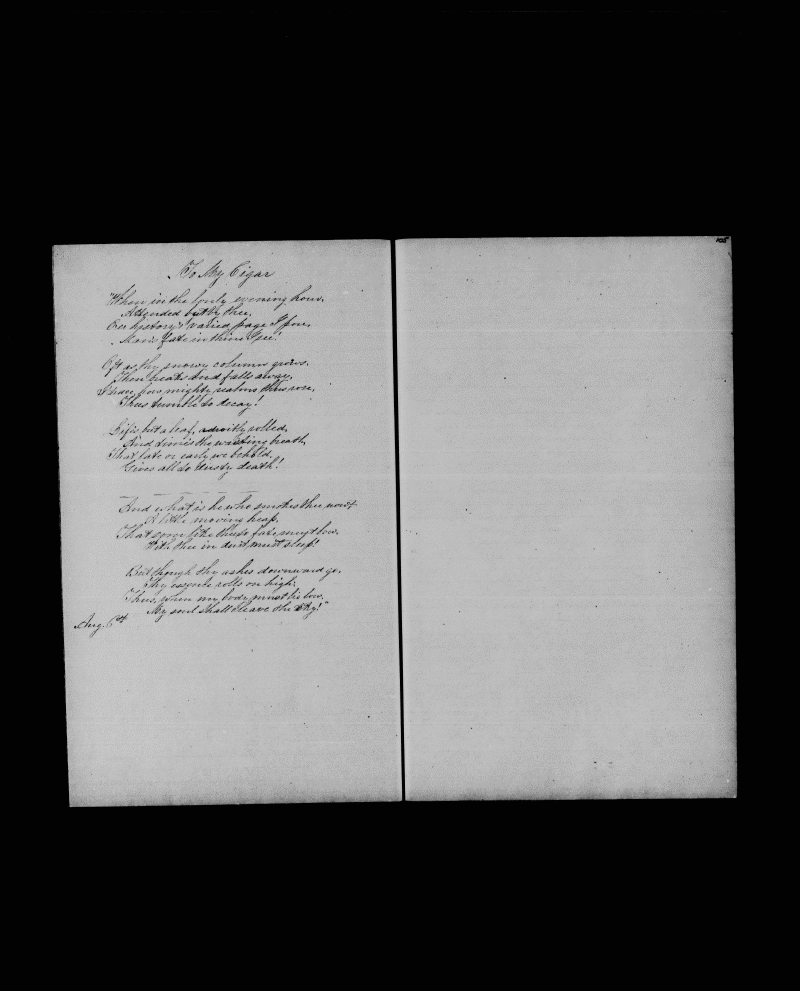 105
To My Cigar
"When in the lonely evening hour,
Attended but by thee,
O'er history's varied page I pore,
Man's fate in thine I see!
Oft as thy snowy column grows,
Then breaks and falls away,
I trace how mighty realms thus rose,
Thus tumble to decay!
Life's but a leaf, adroitly rolled,
And time's the wasting breath,
That, late or early we behold,
Gives all to dusty death!
And what is he who smokes thee now?
A little moving heap,
That soon like thee to fate must bow,
With thee in dust must sleep!
But though thy ashes downward go,
Thy essence rolls on high;
Thus, when my body must lie low,
My soul shall cleave the sky!"
Aug. 6th